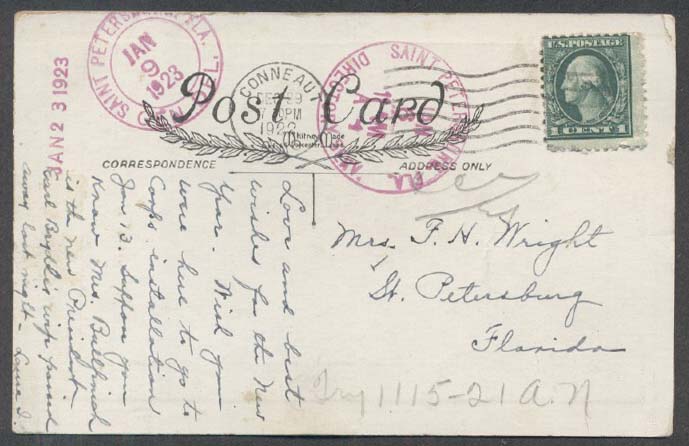 SAINT PETERSBURG, FLA.
JAN
9
1923
JAN 23 1923
CONNEAUT
DEC 29
7 PM
1922
SAINT PETERSBURG, FLA.
U.S. POSTAGE
1 CENT 1
Post Card
Whitney Made
Worcester Mass
CORRESPONDENCE
ADDRESS ONLY
Love and best
wishes for the New
Year. Wish you
were here to go to
Corps installation
Jan 13. Suppose you
know Mrs. Bullfinch
is the new President
Earl wife passed
away last night —
Mrs. F. H. Wright
St. Petersburg
Florida
Try 1115-21 A. N